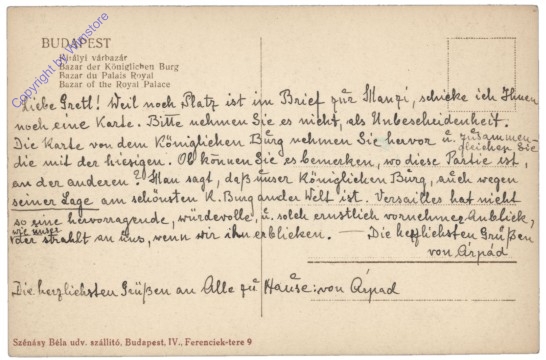 BUDAPEST
Királyi várbazár
Bazar der Königlichen Burg
Bazar du Palais Royal
Bazar of the Royal Palace
Copyright by Wnrstore
Liebe Gretl! Weil noch Platz ist im Brief zur Manzi, schicke ich Ihnen
noch eine Karte. Bitte nehmen Sie es nicht, als Unbescheidenheit.
Die Karte von dem Königlichen Burg nehmen Sie hervor u. zusammen-
gleichen Sie
die mit der hiesigen. Ob können Sie es bemerken, wo diese Partie ist,
an der anderen? Man sagt, daß unser Königlichen Burg, auch wegen
seiner Lage am schönsten K. Burg an der Welt ist. Versailles hat nicht
so eine hervorragende, würdevolle, u. solch ernstlich vornehmen Anblick,
wie unser
der strahlt an uns, wenn wir ihn erblicken. — Die herzlichsten Grüßen
von Árpád
Die herzlichsten Grüßen an Alle zu Hause: von Árpád
Szénásy Béla udv. szállító, Budapest, IV., Ferenciek-tere 9